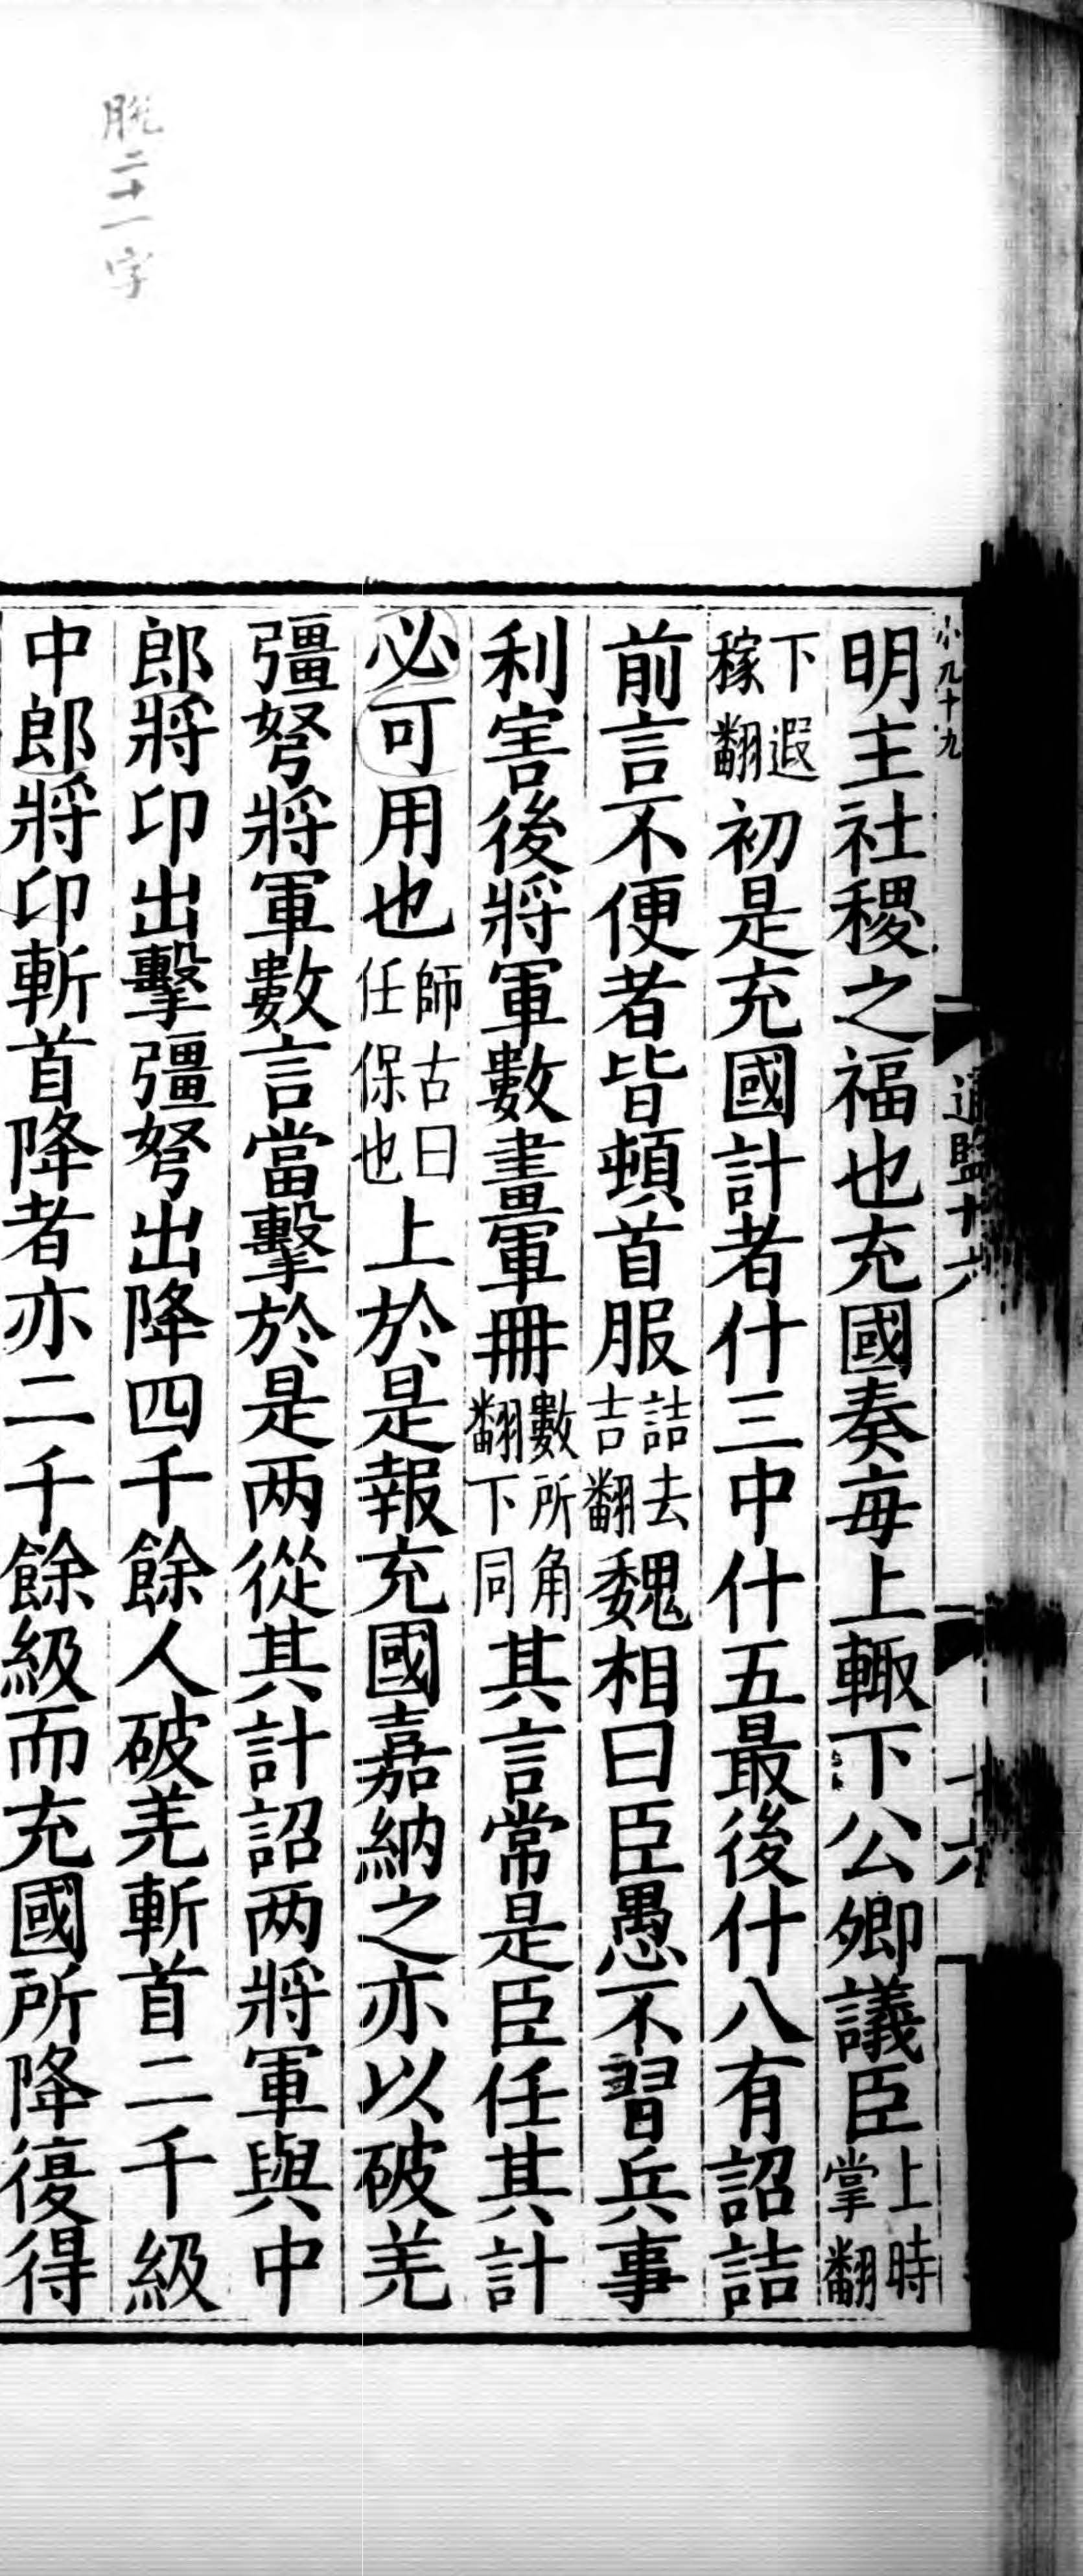 脫二十一字
小九十九
通鑑十六
十六
明主社稷之福也充國奏每上輙下公卿議臣上時掌翻
下遐稼翻初是充國計者什三中什五最後什八有詔詰
前言不便者皆頓首服詰去吉翻魏相曰臣愚不習兵事
利害後將軍數畫軍冊數所角翻下同其言常是臣任其計
必可用也師古曰任保也上於是報充國嘉納之亦以破羌
彊弩將軍數言當擊於是两從其計詔两將軍與中
郎將印出擊彊弩出降四千餘人破羌斬首二千級
中郎將印斬首降者亦二千餘級而充國所降復得